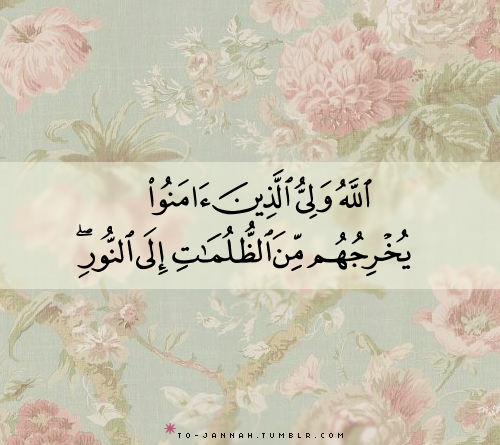 ٱللَّهُ وَلِىُّ ٱلَّذِينَ ءَامَنُوا۟
يُخْرِجُهُم مِّنَ ٱلظُّلُمَـٰتِ إِلَى ٱلنُّورِ ۖ
TO-JANNAH.TUMBLR.COM